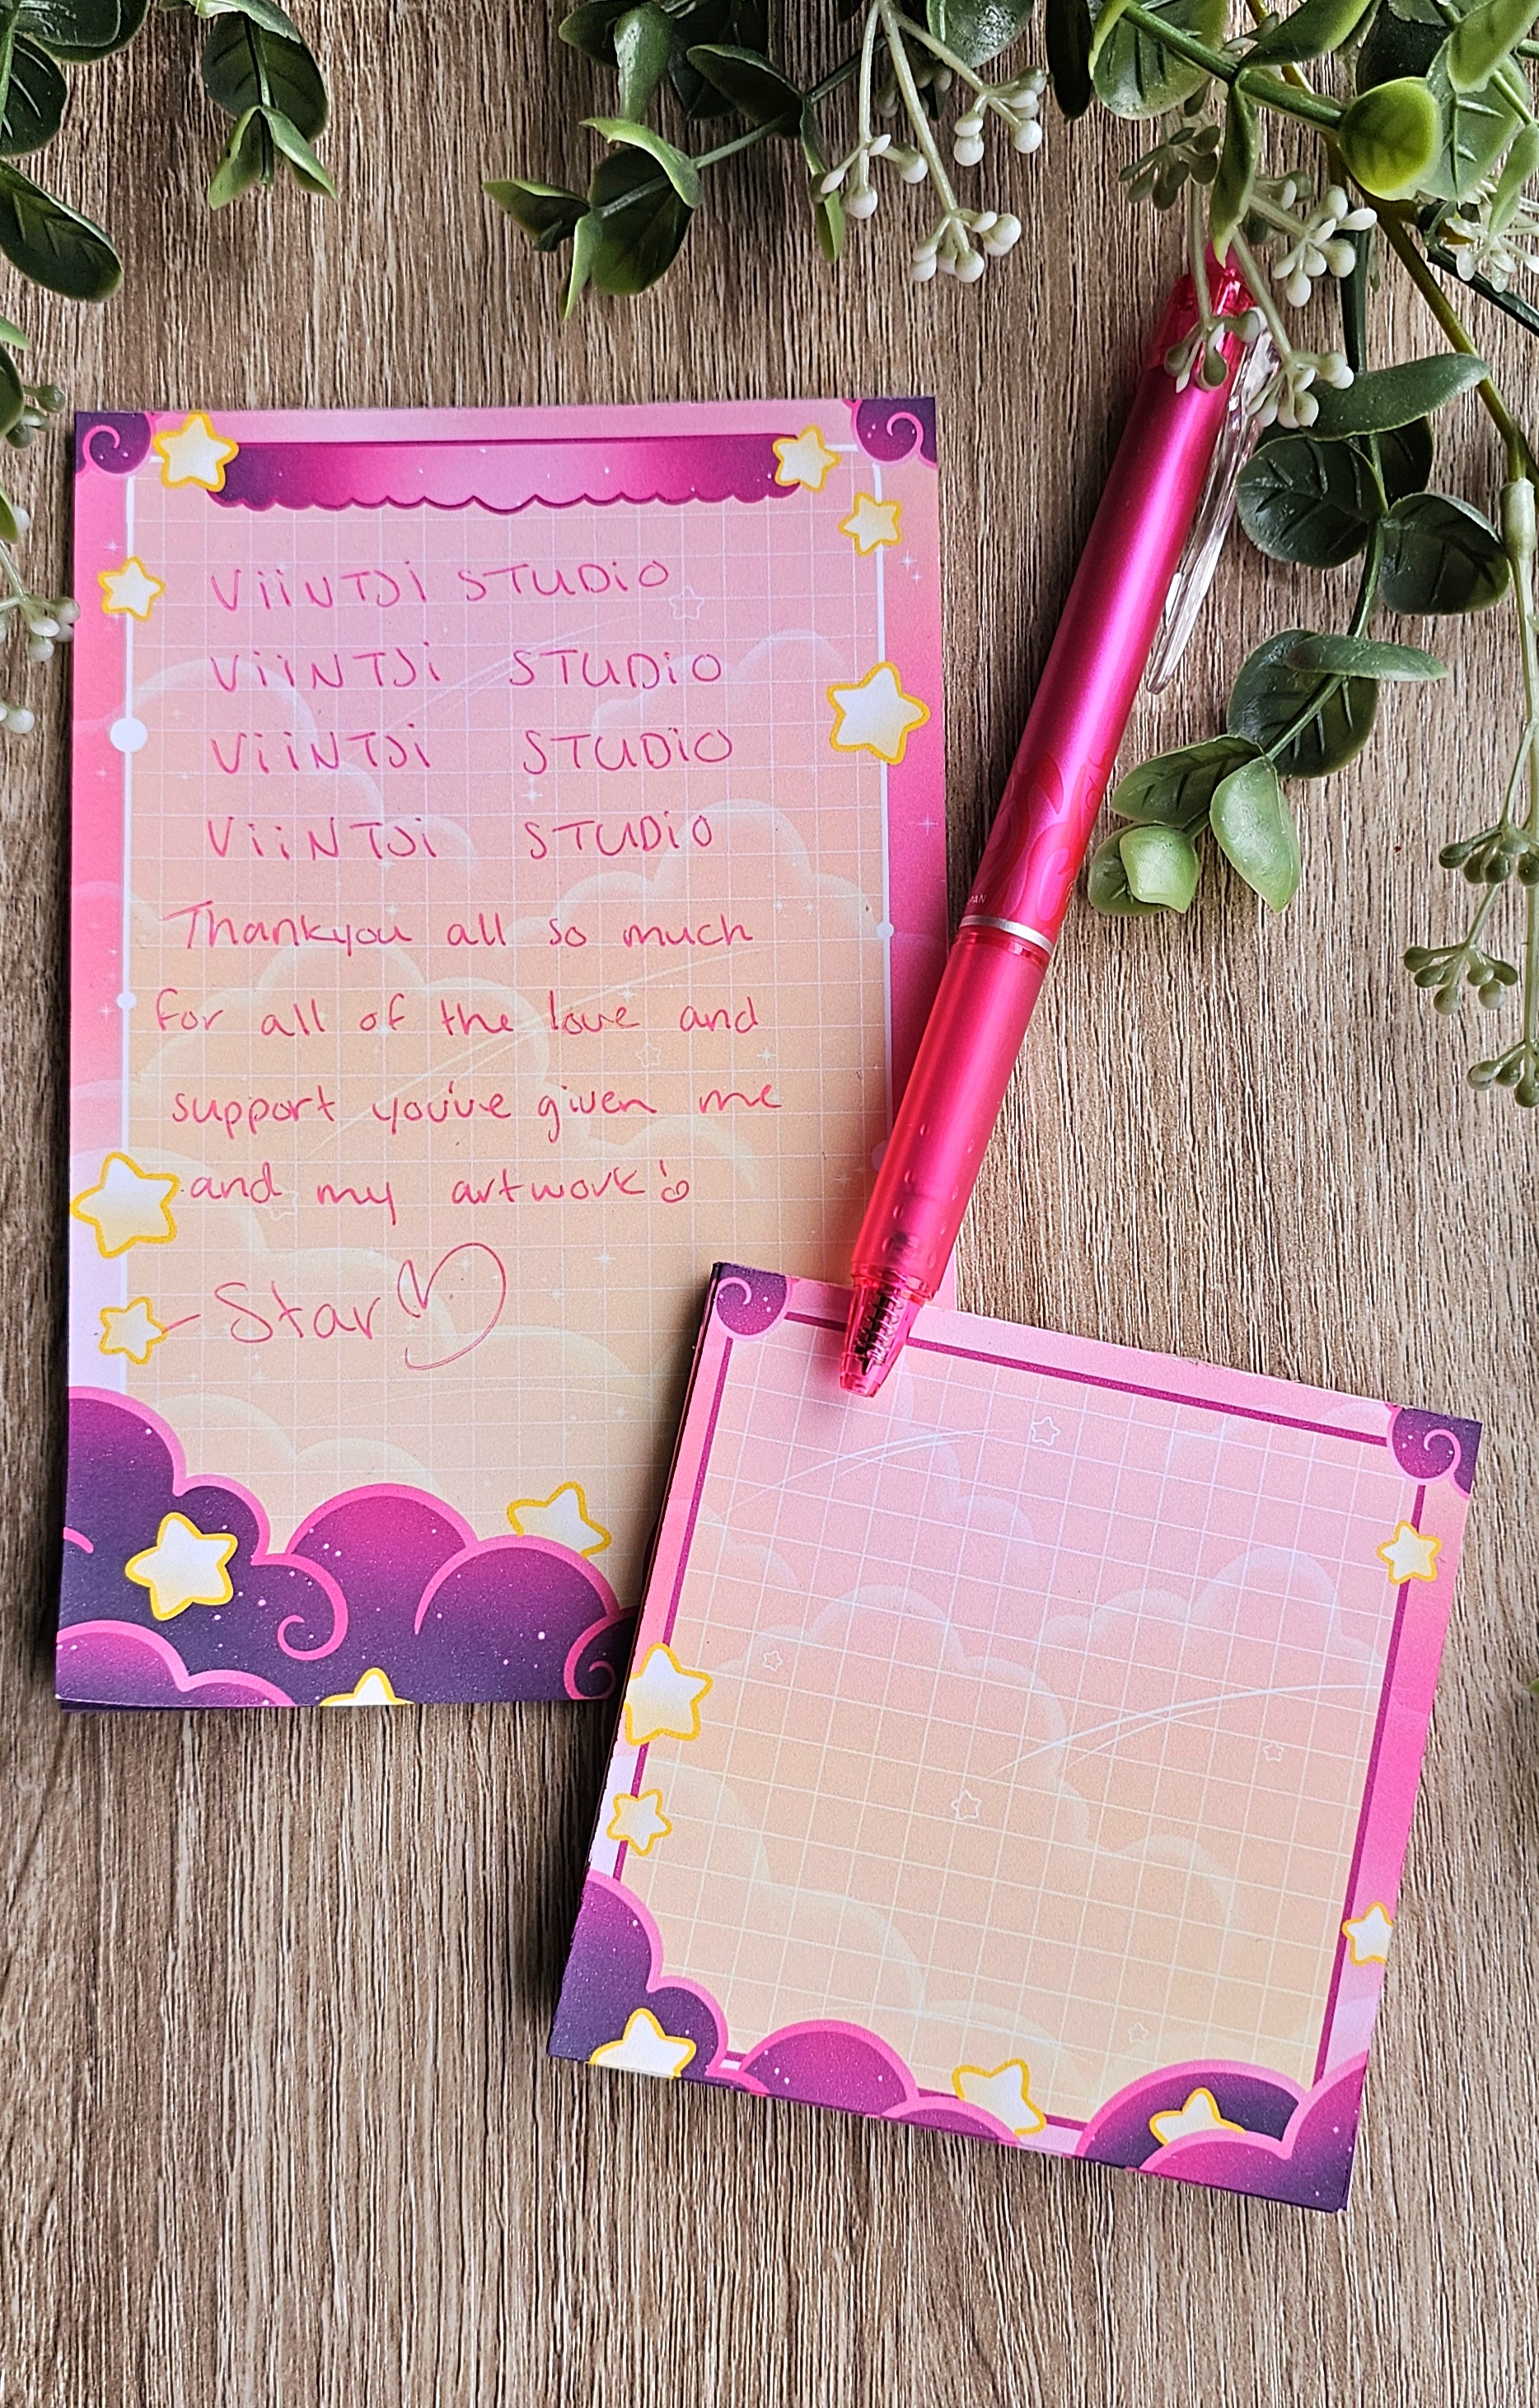 ViiNTJi STUDiO
ViiNTJi STUDiO
ViiNTJi STUDiO
ViiNTJi STUDiO
Thankyou all so much
for all of the love and
support you've given me
and my artwork!
- Star